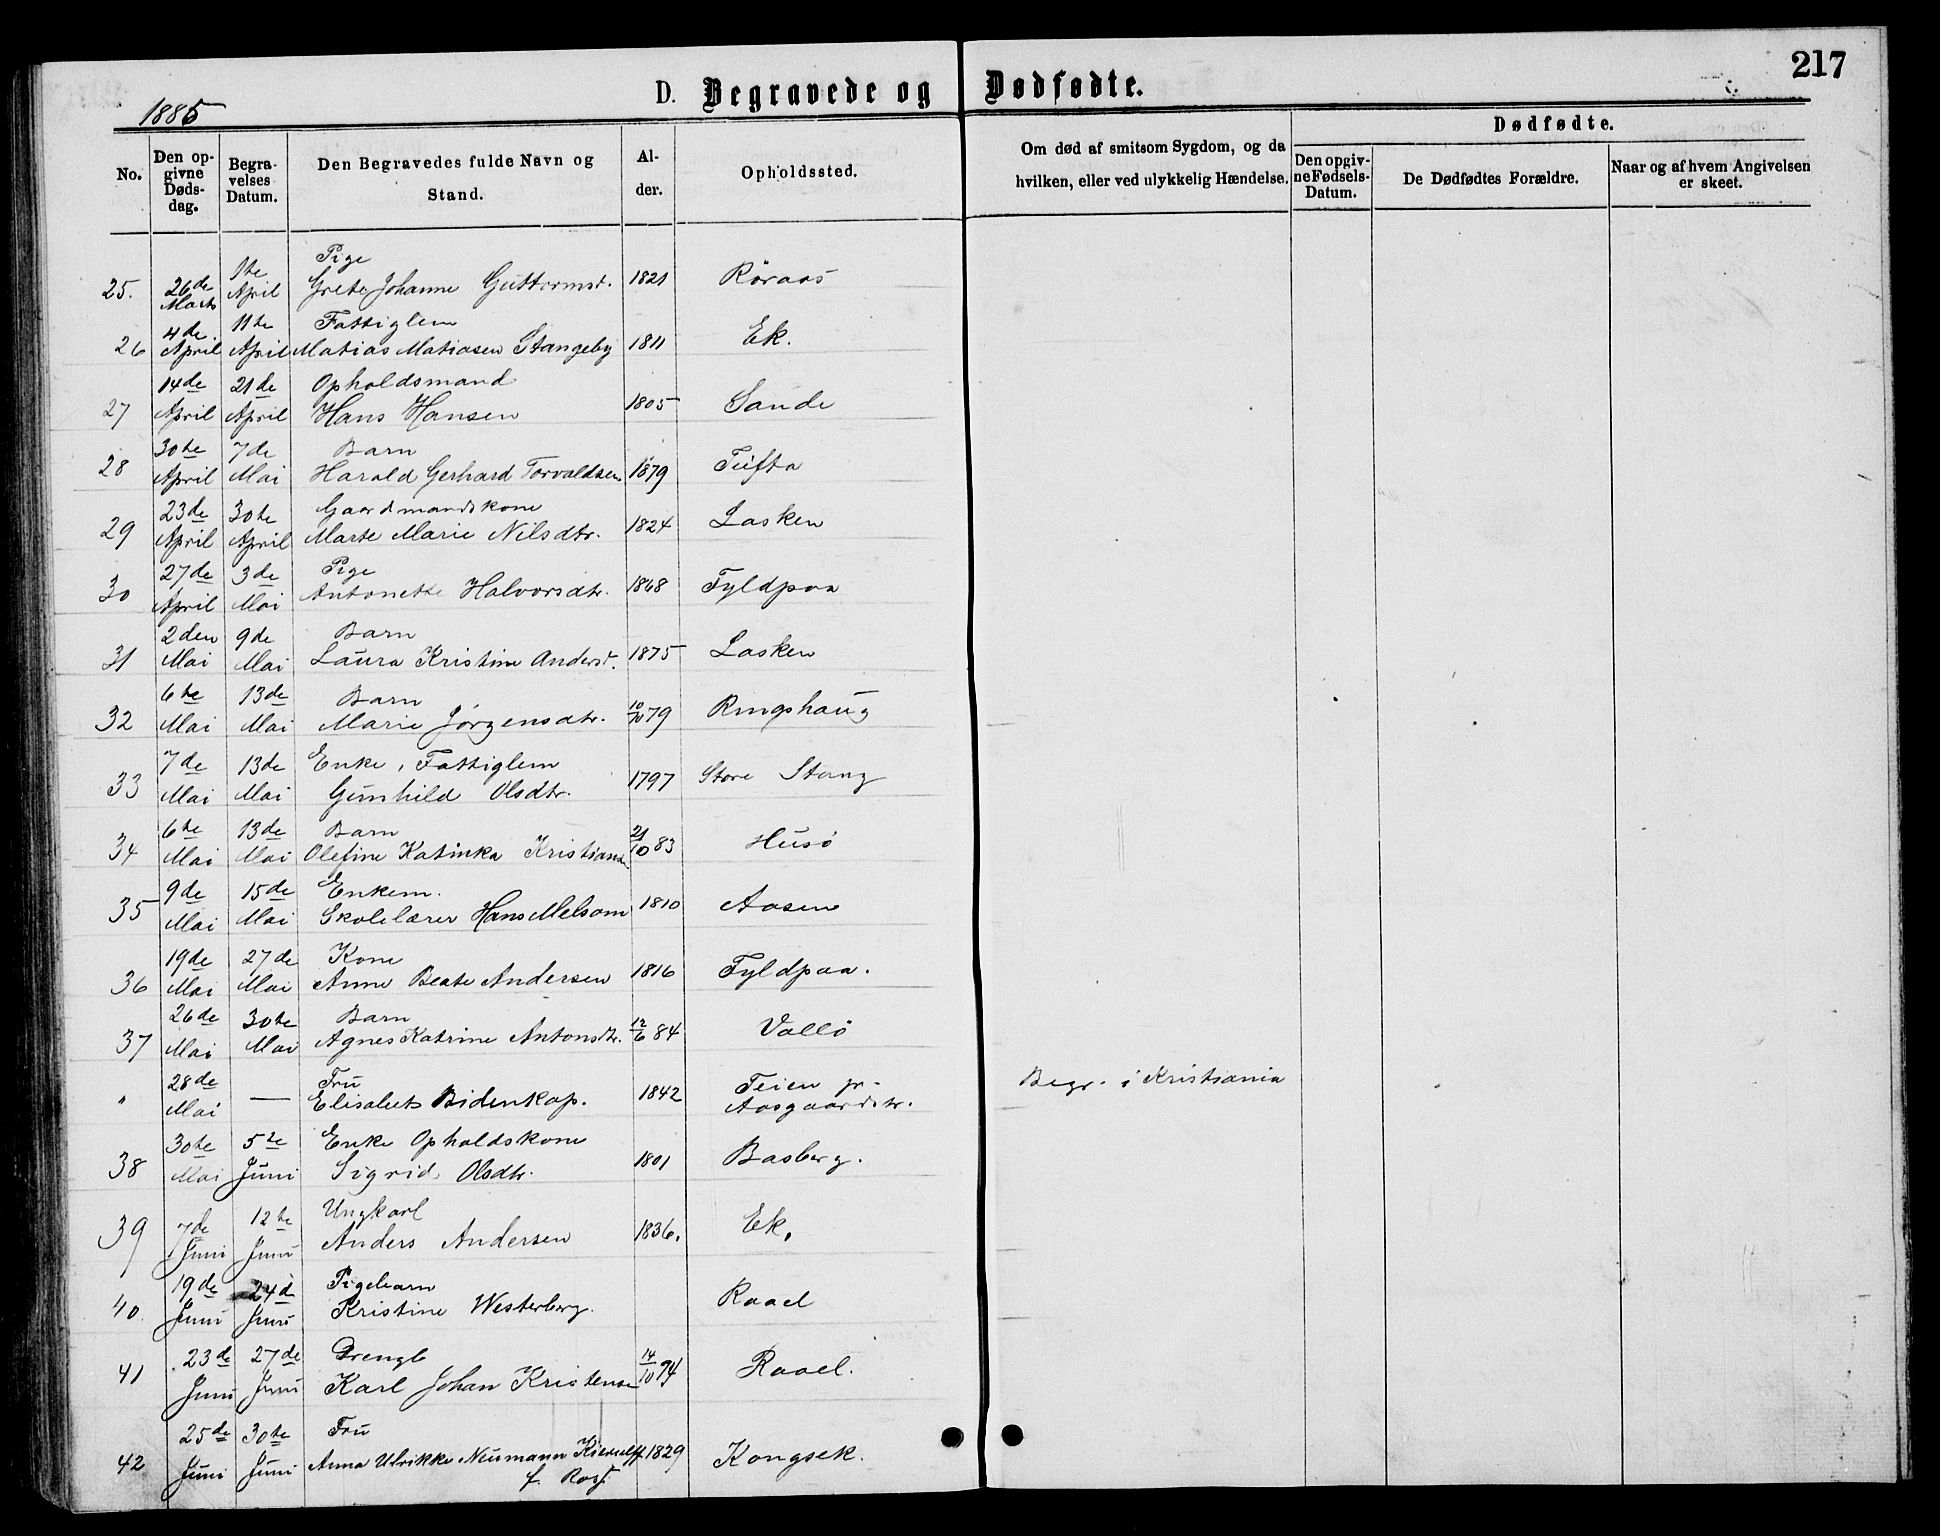 217
1885
D. Begravede og Dødfødte.
No.
Den opgivne Dødsdag.
Begravelses Datum.
Den Begravedes fulde Navn og Stand.
Alder.
Opholdssted.
Om død af smitsom Sygdom, og da hvilken, eller ved ulykkelig Hændelse.
Dødfødte.
Den opgivne Fødsels-Datum.
De Dødfødtes Forældre.
Naar og af hvem Angivelsen er skeet.
25. 26de Marts 1te April Pige
Grete Johanne Guttormsd. 1821 Røraas
26 4de April 11te April Fattiglem
Matias Matiasen Stangeby 1811 Ek.
27 14de April 21de April Opholdsmand
Hans Hansen 1805 Sande
28 30te April 7de Mai Barn
Harald Gerhard Torvaldsen 1879 Tufta
29 23de April 30te April Gaardmandskone
Marte Marie Nilsdtr. 1824 Lasken
30 27de April 3de Mai Pige
Antonette Halvorsdtr. 1868 Fyldpaa
31 2den Mai 9de Mai Barn
Laura Kristine Andersd. 1875 Lasken
32 6te Mai 13de Mai Barn
Marie Jørgensdtr. 10/10 79 Ringshaug
33 7de Mai 13de Mai Enke, Fattiglem
Gunhild Olsdtr. 1797 Store Stang
34 6te Mai 13de Mai Barn
Olefine Katinka Kristians 21/10 83 Husø
35 9de Mai 15de Mai Enkem.
Skolelærer Hans Melsom 1810 Aasen
36 19de Mai 27de Mai Kone
Anne Beate Andersen 1816 Fyldpaa.
37 26de Mai 30te Mai Barn
Agnes Katrine Antonsdtr. 12/6 84 Vallø
" 28de Mai — Fru
Elisabet Bidenkap. 1842 Teien pr. Aasgaardstr. Begr. i Kristiania
38 30te Mai 5te Juni Enke Opholdskone
Sigrid Olsdtr. 1801 Basberg.
39 7de Juni 12te Juni Ungkarl
Anders Andersen 1836. Ek.
40. 19de Juni 24d Juni Pigebarn
Kristine Westerberg. Raael
41 23de Juni 27de Juni Drengb
Karl Johan Kristensen 14/10 74 Raael.
42 25de Juni 30te Juni Fru
Anna Ulrikke Neumann Kierulff 1829 Kongsek.
f.